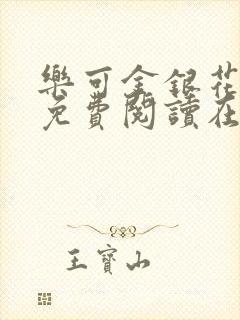 樂可金銀花
免費閱讀在
王寶山